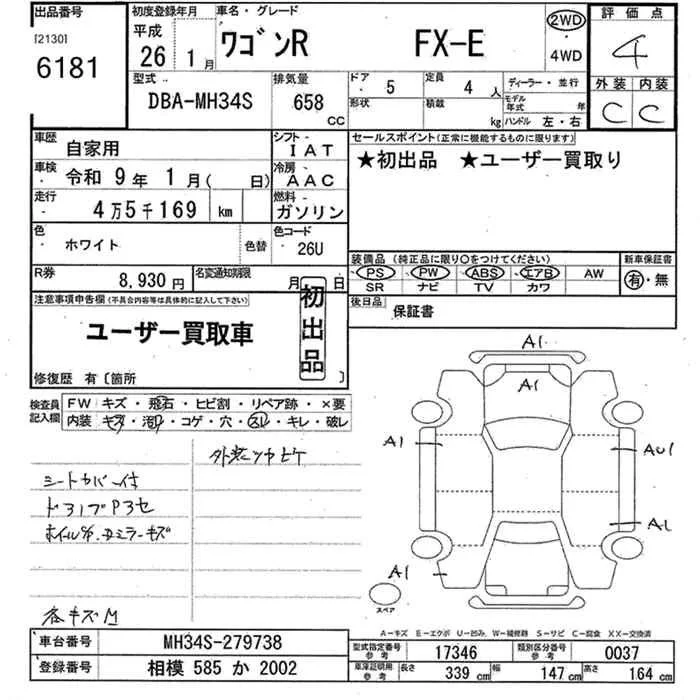 出品番号
[2130]
6181
初度登録年月
平成
26年 1月
車名・グレード
ワゴンR FX-E
2WD
・
4WD
評価点
4
外装 内装
C C
型式
DBA-MH34S
排気量
658
CC
ドア
5
定員
4人
形状
積載
kg
ディーラー・並行
モデル年式 年
ハンドル 左・右
車歴
自家用
シフト
IAT
車検
令和 9年 1月( 日)
冷房
AAC
走行
4万5千169 km
燃料
ガソリン
色
ホワイト
色替
色コード
26U
R券
8,930円
名変通知期限
月 日
セールスポイント(正常に機能するものに限ります)
★初出品 ★ユーザー買取り
装備品(純正品に限り○をつけてください)
PS PW ABS エアB AW
SR ナビ TV カワ
新車保証書
有・無
後日品
保証書
注意事項申告欄(不具合内容等は具体的に記入して下さい)
ユーザー買取車
初出品
修復歴 有〔箇所 〕
検査員記入欄
FW キズ・飛石・ヒビ割・リペア跡・×要
内装 キズ・汚れ・コゲ・穴・スレ・キレ・破レ
シートカバー付
ホイルキズ
ミラーキズ
各キズ
A1
A1
A1
AU1
A1
A1
スペア
A-キズ E-エクボ U-凹み W-補修跡 S-サビ C-腐食 XX-交換済
車台番号
MH34S-279738
登録番号
相模 585 か 2002
型式指定番号
参考
17346
類別区分番号
参考
0037
車庫証明用
参考
長さ 339cm 幅 147cm 高さ 164cm